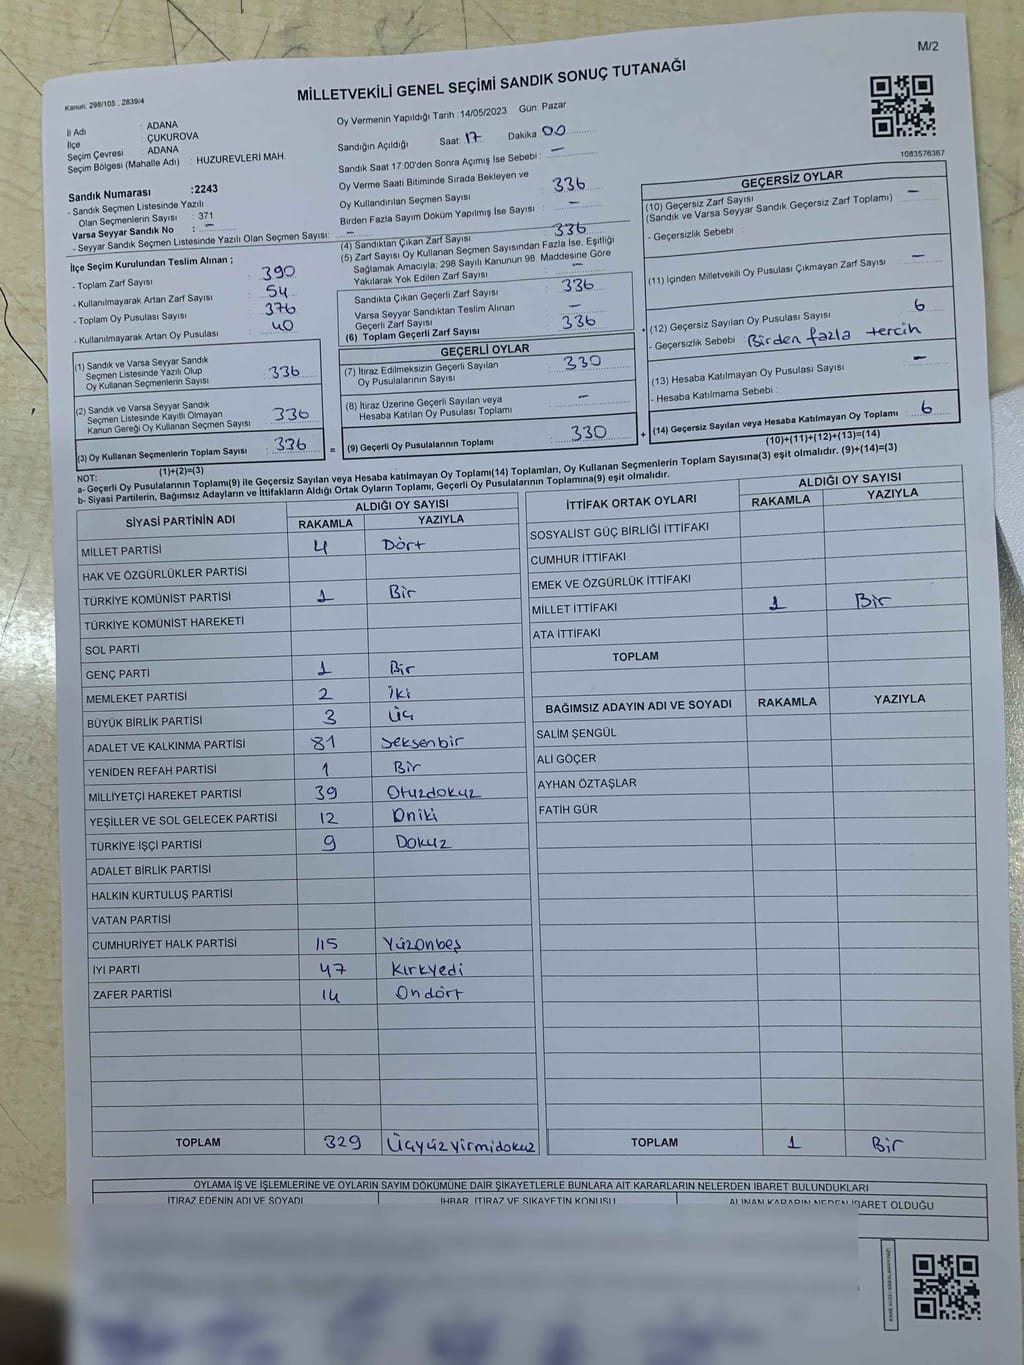 M/2
Kanun: 298/105 , 2839/4
MİLLETVEKİLİ GENEL SEÇİMİ SANDIK SONUÇ TUTANAĞI
İl Adı : ADANA
İlçe : ÇUKUROVA
Seçim Çevresi : ADANA
Seçim Bölgesi (Mahalle Adı) : HUZUREVLERİ MAH.
Sandık Numarası :2243
- Sandık Seçmen Listesinde Yazılı
Olan Seçmenlerin Sayısı : 371
Varsa Seyyar Sandık No : –
- Seyyar Sandık Seçmen Listesinde Yazılı Olan Seçmen Sayısı: –
İlçe Seçim Kurulundan Teslim Alınan ;
- Toplam Zarf Sayısı : 390
- Kullanılmayarak Artan Zarf Sayısı : 54
- Toplam Oy Pusulası Sayısı : 376
- Kullanılmayarak Artan Oy Pusulası : 40
(1) Sandık ve Varsa Seyyar Sandık
Seçmen Listesinde Yazılı Olup
Oy Kullanan Seçmenlerin Sayısı : 336
(2) Sandık ve Varsa Seyyar Sandık
Seçmen Listesinde Kayıtlı Olmayan
Kanun Gereği Oy Kullanan Seçmen Sayısı : 336
(3) Oy Kullanan Seçmenlerin Toplam Sayısı : 336
(1)+(2)=(3)
Oy Vermenin Yapıldığı Tarih :14/05/2023 Gün: Pazar
Sandığın Açıldığı Saat: 17 Dakika 00
Sandık Saat 17:00'den Sonra Açımış İse Sebebi : –
Oy Verme Saati Bitiminde Sırada Bekleyen ve
Oy Kullandırılan Seçmen Sayısı : 336
Birden Fazla Sayım Döküm Yapılmış İse Sayısı : –
(4) Sandıktan Çıkan Zarf Sayısı : 336
(5) Zarf Sayısı Oy Kullanan Seçmen Sayısından Fazla İse, Eşitliği
Sağlamak Amacıyla; 298 Sayılı Kanunun 98. Maddesine Göre
Yakılarak Yok Edilen Zarf Sayısı : –
Sandıkta Çıkan Geçerli Zarf Sayısı : 336
Varsa Seyyar Sandıktan Teslim Alınan
Geçerli Zarf Sayısı : –
(6) Toplam Geçerli Zarf Sayısı : 336
GEÇERLİ OYLAR
(7) İtiraz Edilmeksizin Geçerli Sayılan
Oy Pusulalarının Sayısı : 330
(8) İtiraz Üzerine Geçerli Sayılan veya
Hesaba Katılan Oy Pusulası Toplamı : –
= (9) Geçerli Oy Pusulalarının Toplamı : 330
1083576367
GEÇERSİZ OYLAR
(10) Geçersiz Zarf Sayısı : –
(Sandık ve Varsa Seyyar Sandık Geçersiz Zarf Toplamı)
- Geçersizlik Sebebi :
(11) İçinden Milletvekili Oy Pusulası Çıkmayan Zarf Sayısı : –
(12) Geçersiz Sayılan Oy Pusulası Sayısı : 6
- Geçersizlik Sebebi : Birden fazla tercih
(13) Hesaba Katılmayan Oy Pusulası Sayısı : –
- Hesaba Katılmama Sebebi :
+ (14) Geçersiz Sayılan veya Hesaba Katılmayan Oy Toplamı : 6
(10)+(11)+(12)+(13)=(14)
NOT:
a- Geçerli Oy Pusulalarının Toplamı(9) ile Geçersiz Sayılan veya Hesaba katılmayan Oy Toplamı(14) Toplamları, Oy Kullanan Seçmenlerin Toplam Sayısına(3) eşit olmalıdır. (9)+(14)=(3)
b- Siyasi Partilerin, Bağımsız Adayların ve İttifakların Aldığı Ortak Oyların Toplamı, Geçerli Oy Pusulalarının Toplamına(9) eşit olmalıdır.
SİYASİ PARTİNİN ADI ALDIĞI OY SAYISI
RAKAMLA YAZIYLA
MİLLET PARTİSİ 4 Dört
HAK VE ÖZGÜRLÜKLER PARTİSİ
TÜRKİYE KOMÜNİST PARTİSİ 1 Bir
TÜRKİYE KOMÜNİST HAREKETİ
SOL PARTİ
GENÇ PARTİ 1 Bir
MEMLEKET PARTİSİ 2 İki
BÜYÜK BİRLİK PARTİSİ 3 Üç
ADALET VE KALKINMA PARTİSİ 81 Seksenbir
YENİDEN REFAH PARTİSİ 1 Bir
MİLLİYETÇİ HAREKET PARTİSİ 39 Otuzdokuz
YEŞİLLER VE SOL GELECEK PARTİSİ 12 Oniki
TÜRKİYE İŞÇİ PARTİSİ 9 Dokuz
ADALET BİRLİK PARTİSİ
HALKIN KURTULUŞ PARTİSİ
VATAN PARTİSİ
CUMHURİYET HALK PARTİSİ 115 Yüzonbeş
İYİ PARTİ 47 Kırkyedi
ZAFER PARTİSİ 14 Ondört
TOPLAM 329 Üçyüzyirmidokuz
İTTİFAK ORTAK OYLARI ALDIĞI OY SAYISI
RAKAMLA YAZIYLA
SOSYALİST GÜÇ BİRLİĞİ İTTİFAKI
CUMHUR İTTİFAKI
EMEK VE ÖZGÜRLÜK İTTİFAKI
MİLLET İTTİFAKI 1 Bir
ATA İTTİFAKI
TOPLAM
BAĞIMSIZ ADAYIN ADI VE SOYADI RAKAMLA YAZIYLA
SALİM ŞENGÜL
ALİ GÖÇER
AYHAN ÖZTAŞLAR
FATİH GÜR
TOPLAM 1 Bir
OYLAMA İŞ VE İŞLEMLERİNE VE OYLARIN SAYIM DÖKÜMÜNE DAİR ŞİKAYETLERLE BUNLARA AİT KARARLARIN NELERDEN İBARET BULUNDUKLARI
İTİRAZ EDENİN ADI VE SOYADI İHBAR, İTİRAZ VE ŞİKAYETİN KONUSU ALINAN KARARIN NEDEN İBARET OLDUĞU